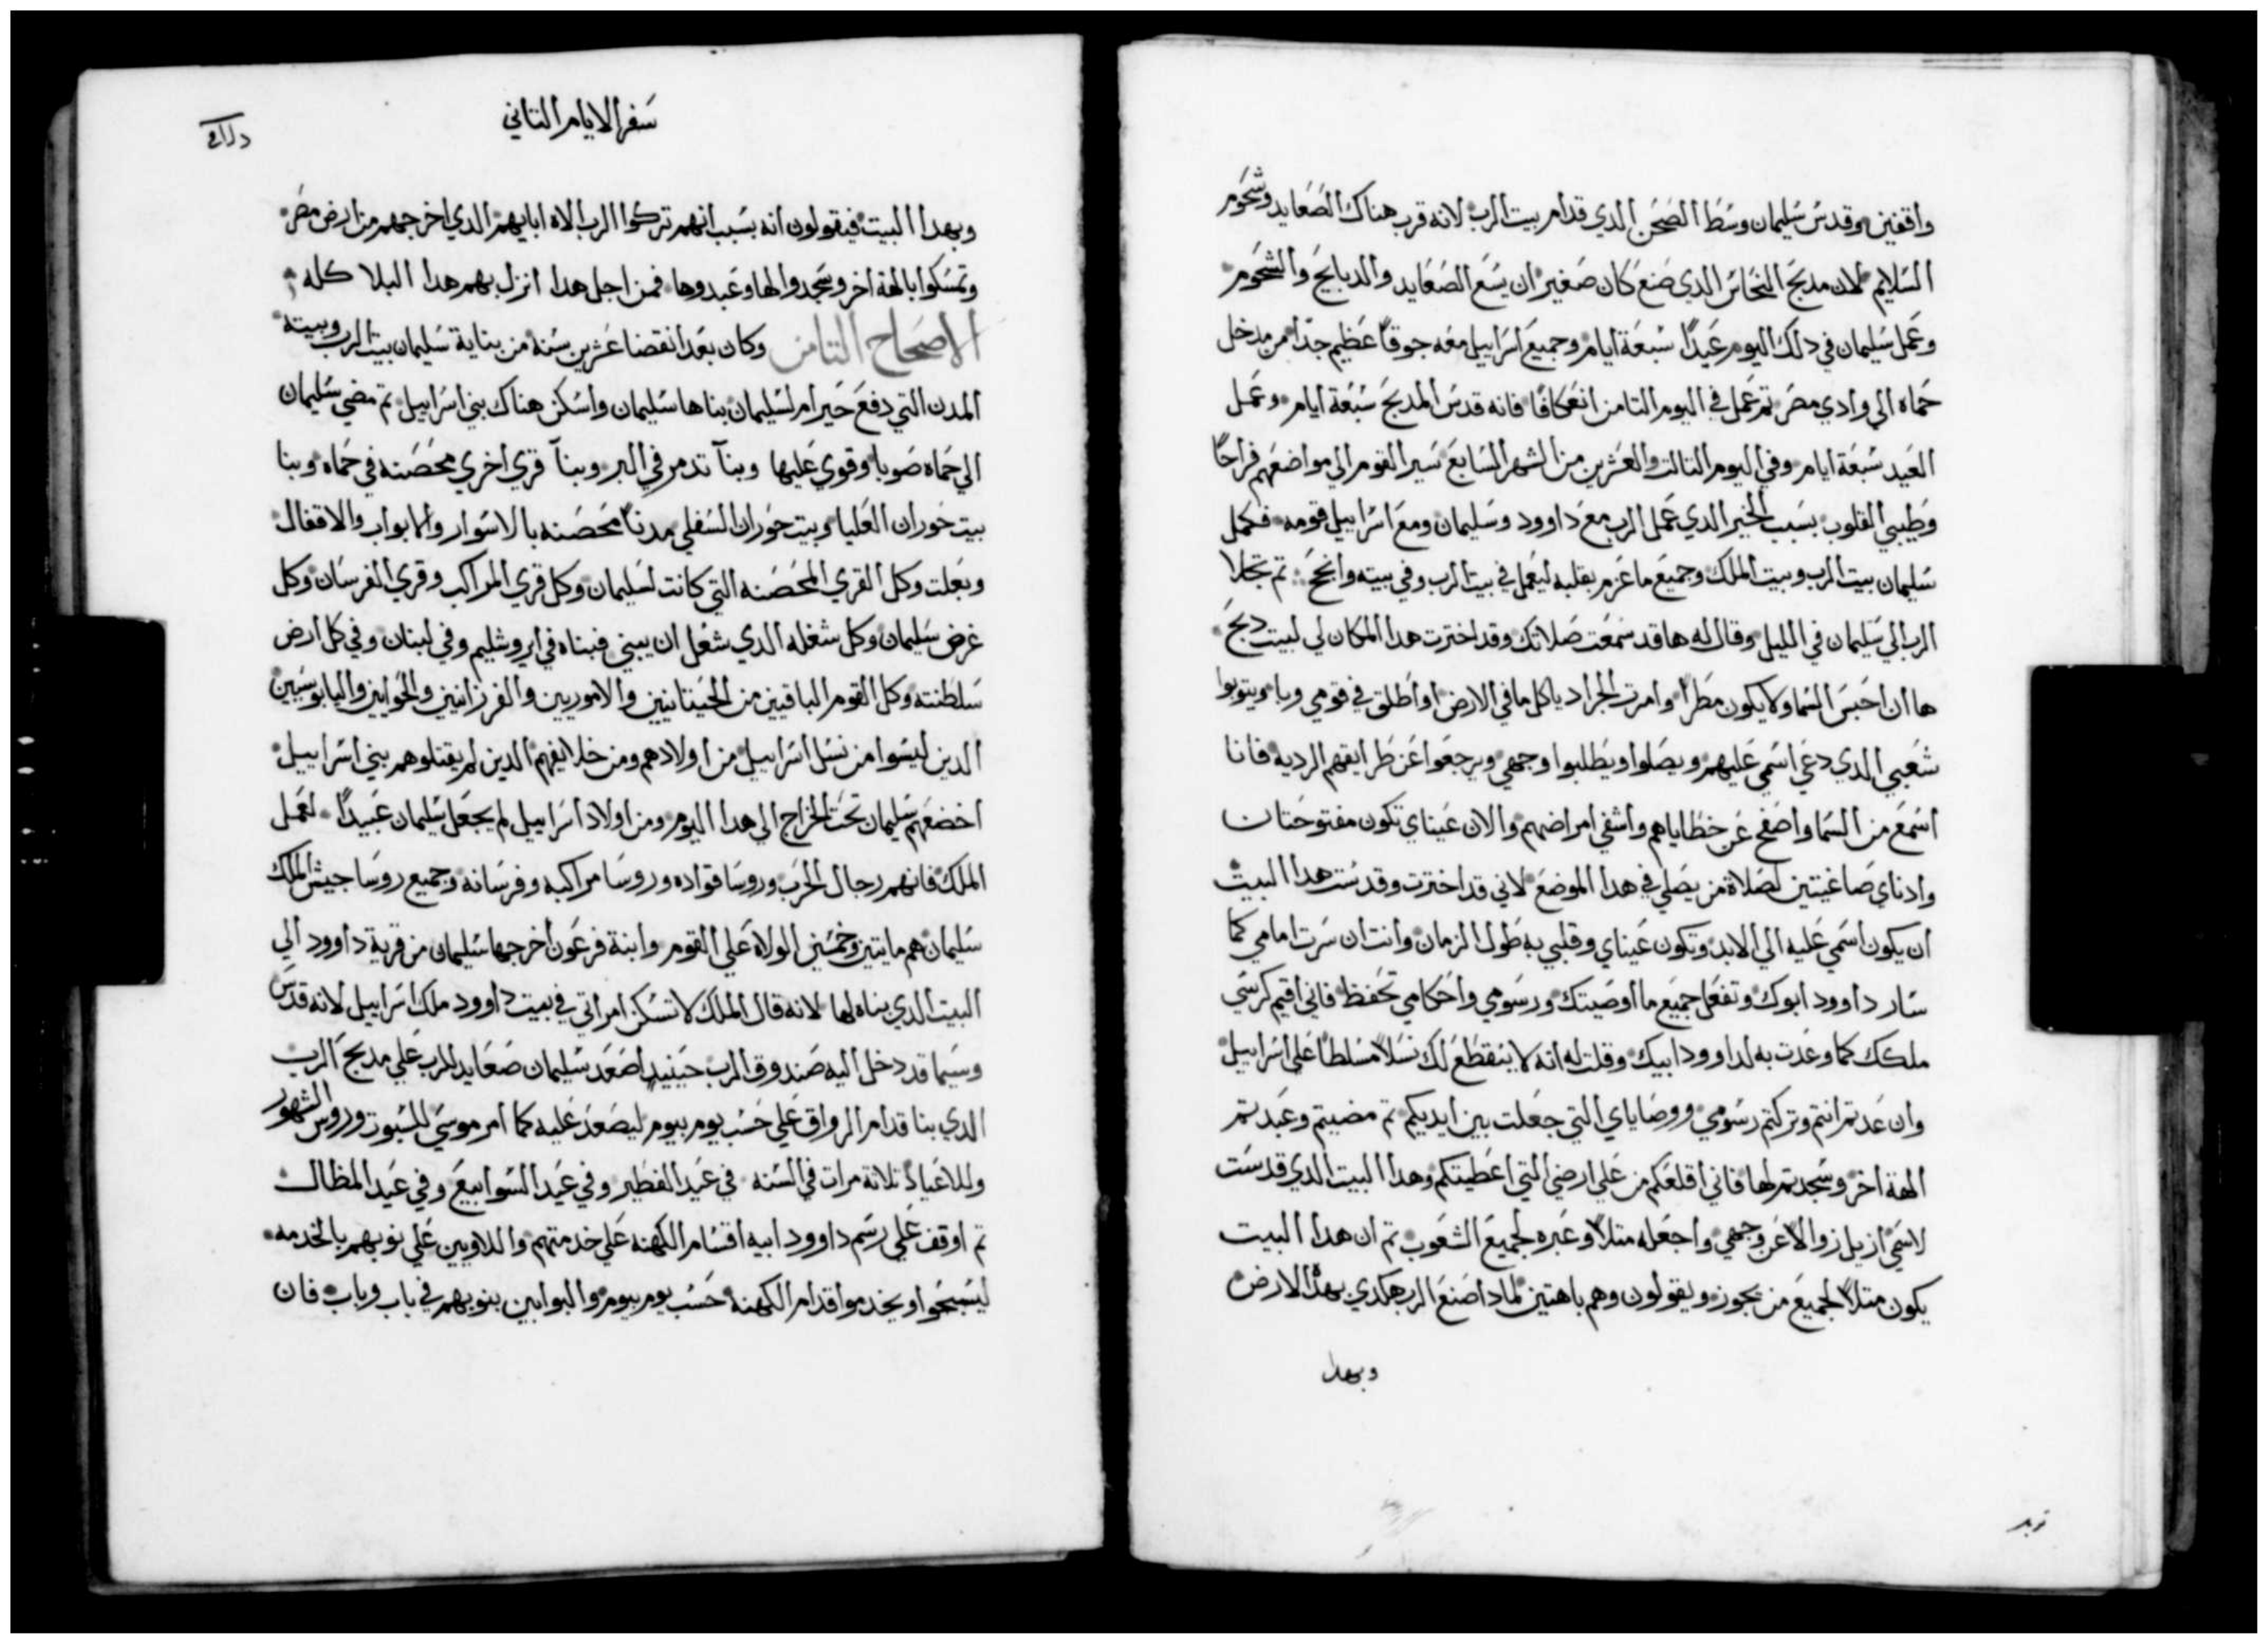 واقفين وقدس سليمان وسط الصحن الدي قدام بيت الرب لانه قرب هناك الصعايد وشحوم
السلايم لان مدبح النحاس الدي صنع كان صغير ان يسع الصعايد والدبايح والشحوم
وعمل سليمان في دلك اليوم عيدًا سبعة ايام وجميع اسراييل معه جوقًا عظيم جدّا من مدخل
حماه الي وادي مصر تم عمل في اليوم التامن انعكافًا فانه قدس المدبح سبعة ايام وعمل
العيد سبعة ايام وفي اليوم التالت والعشرين من الشهر السابع سير القوم الي مواضعهم فراحًا
وطيبي القلوب بسبب الخير الدي عمل الرب مع داوود وسليمان ومع اسراييل قومه فكمل
سليمان بيت الرب وبيت الملك وجميع ما عزم بقلبه ليعمل في بيت الرب وفي بيته وانجح تم تجلا
الرب الي سليمان في الليل وقال له ها قد سمعت صلاتك وقد اخترت هدا المكان لي لبيت دبح
ها ان احبس السما ولا يكون مطرًا وامرت الجراد ياكل ما في الارض او اطلق في قومي وبا ويتوبوا
شعبي الدي دعي اسمي عليهم ويصلوا ويطلبوا وجهي ويرجعوا عن طرايقهم الرديه فانا
اسمع من السما واصفح عن خطاياهم واشفي امراضهم والان عيناي تكون مفتوحتان
وادناي صاغيتين لصلاة من يصلي في هدا الموضع لاني قد اخترت وقدست هدا البيت
ان يكون اسمي عليه الي الابد وتكون عيناي وقلبي به طول الزمان وانت ان سرت امامي كما
سار داوود ابوك وتفعل جميع ما اوصيتك ورسومي واحكامي تحفظ فاني اقيم كرسي
ملكك كما وعدت به لداوود ابيك وقلت له انه لا ينقطع لك نسلًا مسلطًا علي اسراييل
وان عدتم انتم وتركتم رسومي ووصاياي التي جعلت بين ايديكم تم مضيتم وعبدتم
الهة اخر وسجدتم لها فاني اقلعكم من علي ارضي التي اعطيتكم وهدا البيت الدي قدست
لاسمي ازيل زوالا عن وجهي واجعله متلًا وعبره لجميع الشعوب تم ان هدا البيت
يكون متلًا لجميع من يجوز ويقولون وهم باهتين لمادا صنع الرب هكدي بهده الارض
وبهدا
سفر الايام التاني
وبهدا البيت فيقولون انه بسبب انهم تركوا الرب الاه ابايهم الدي اخرجهم من ارض مصر
وتمسكوا بالهة اخر وسجدوا لها وعبدوها فمن اجل هدا انزل بهم هدا البلا كله
الاصحاح التامن وكان بعد انقضا عشرين سنه من بناية سليمان بيت الرب وبيته
المدن التي دفع حيرام لسليمان بناها سليمان واسكن هناك بني اسراييل تم مضي سليمان
الي حماه صوبا وقوي عليها وبنآ تدمر في البر وبنآ قري اخري محصنه في حماه وبنا
بيت حوران العليا وبيت حوران السفلي مدنًا محصنه بالاسوار والابواب والاقفال
وبعلت وكل القري المحصنه التي كانت لسليمان وكل قري المراكب وقري الفرسان وكل
غرض سليمان وكل شغله الدي شغل ان يبني فبناه في ايروشليم وفي لبنان وفي كل ارض
سلطنته وكل القوم الباقيين من الحيتانيين والاموريين والفرزانيين والحوايين واليابوسيين
الدين ليسوا من نسل اسراييل من اولادهم ومن خلايفهم الدين لم يقتلوهم بني اسراييل
اخضعهم سليمان تحت الخراج الي هدا اليوم ومن اولاد اسراييل لم يجعل سليمان عبيدًا لعمل
الملك فانهم رجال الحرب وروسا قواده وروسا مراكبه وفرسانه وجميع روسا جيش الملك
سليمان هم مايتين وخمسين الولاة علي القوم وابنة فرعون اخرجها سليمان من قرية داوود الي
البيت الدي بناه لها لانه قال الملك لا تسكن امراتي في بيت داوود ملك اسراييل لانه قدس
وسيما قد دخل اليه صندوق الرب حينيد اصعد سليمان صعايد للرب علي مدبح الرب
الدي بنا قدام الرواق علي حسب يوم بيوم ليصعد عليه كما امر موسي للسبوت وروس الشهور
وللاعياد تلاتة مرات في السنه في عيد الفطير وفي عيد السوابيع وفي عيد المظال
تم اوقف علي رسم داوود ابيه اقسام الكهنه علي خدمتهم واللاويين علي نوبهم بالخدمه
ليسبحوا ويخدموا قدام الكهنه حسب يوم بيوم والبوابين بنوبهم في باب وباب فان